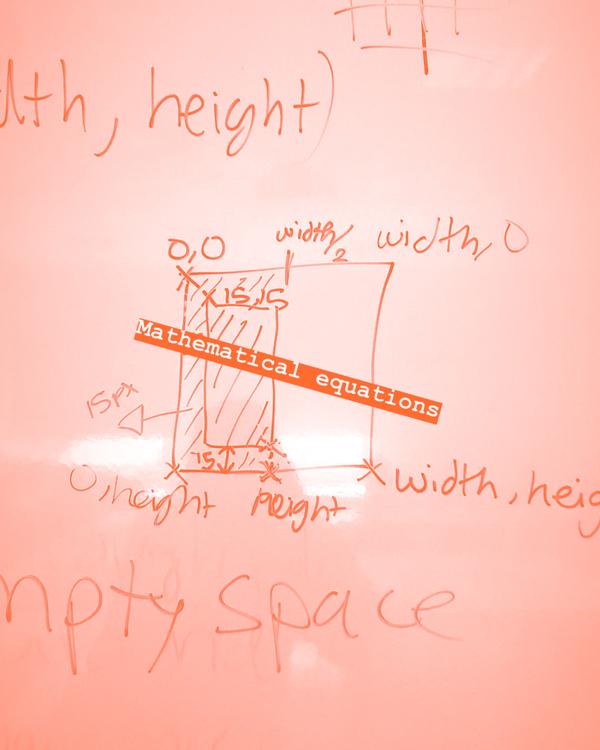 dth, height)
0,0
width/2
width, 0
15,15
Mathematical equations
15px
15
0, height
height
width, heig
mpty space